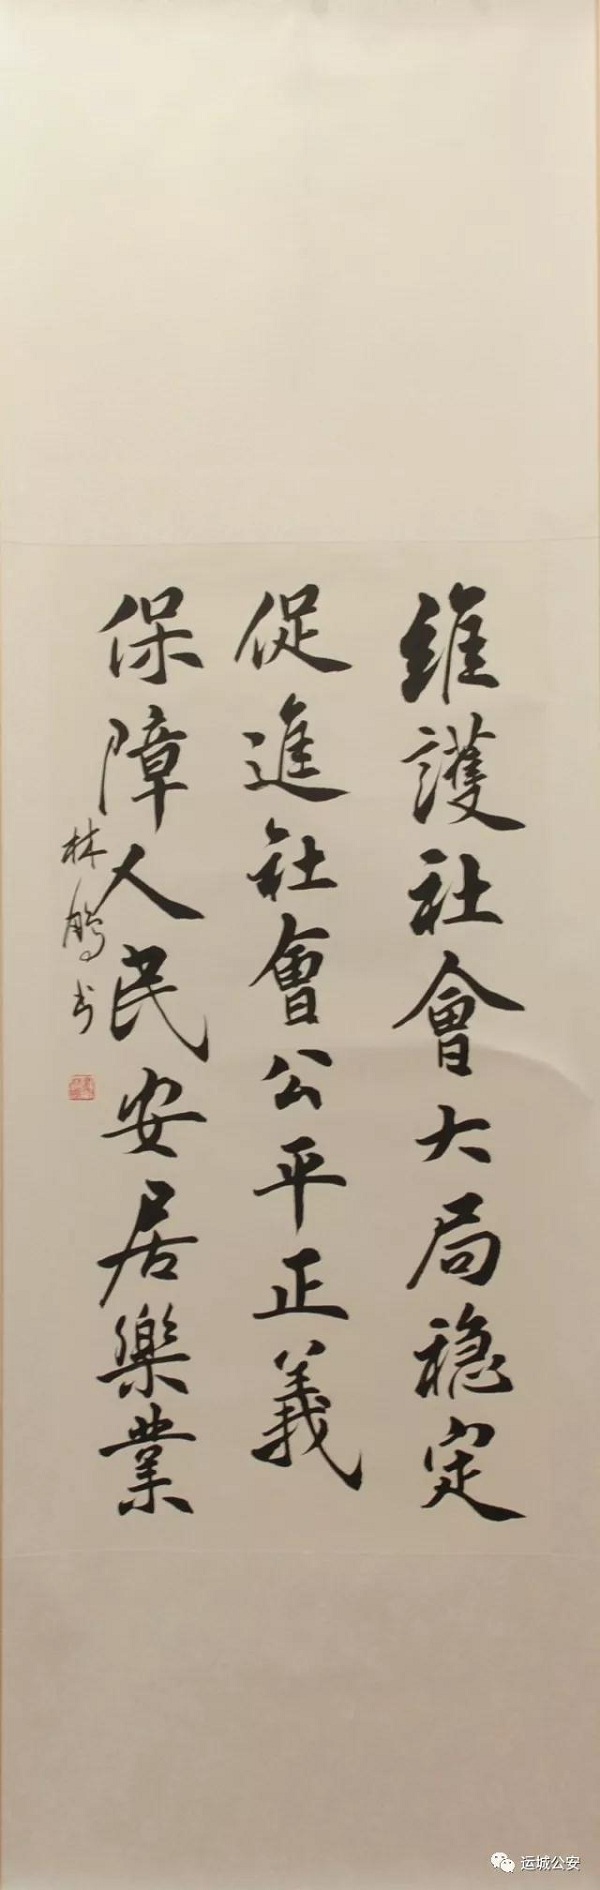 維護社會大局穩定
促進社會公平正義
保障人民安居樂業
林鵬书
运城公安